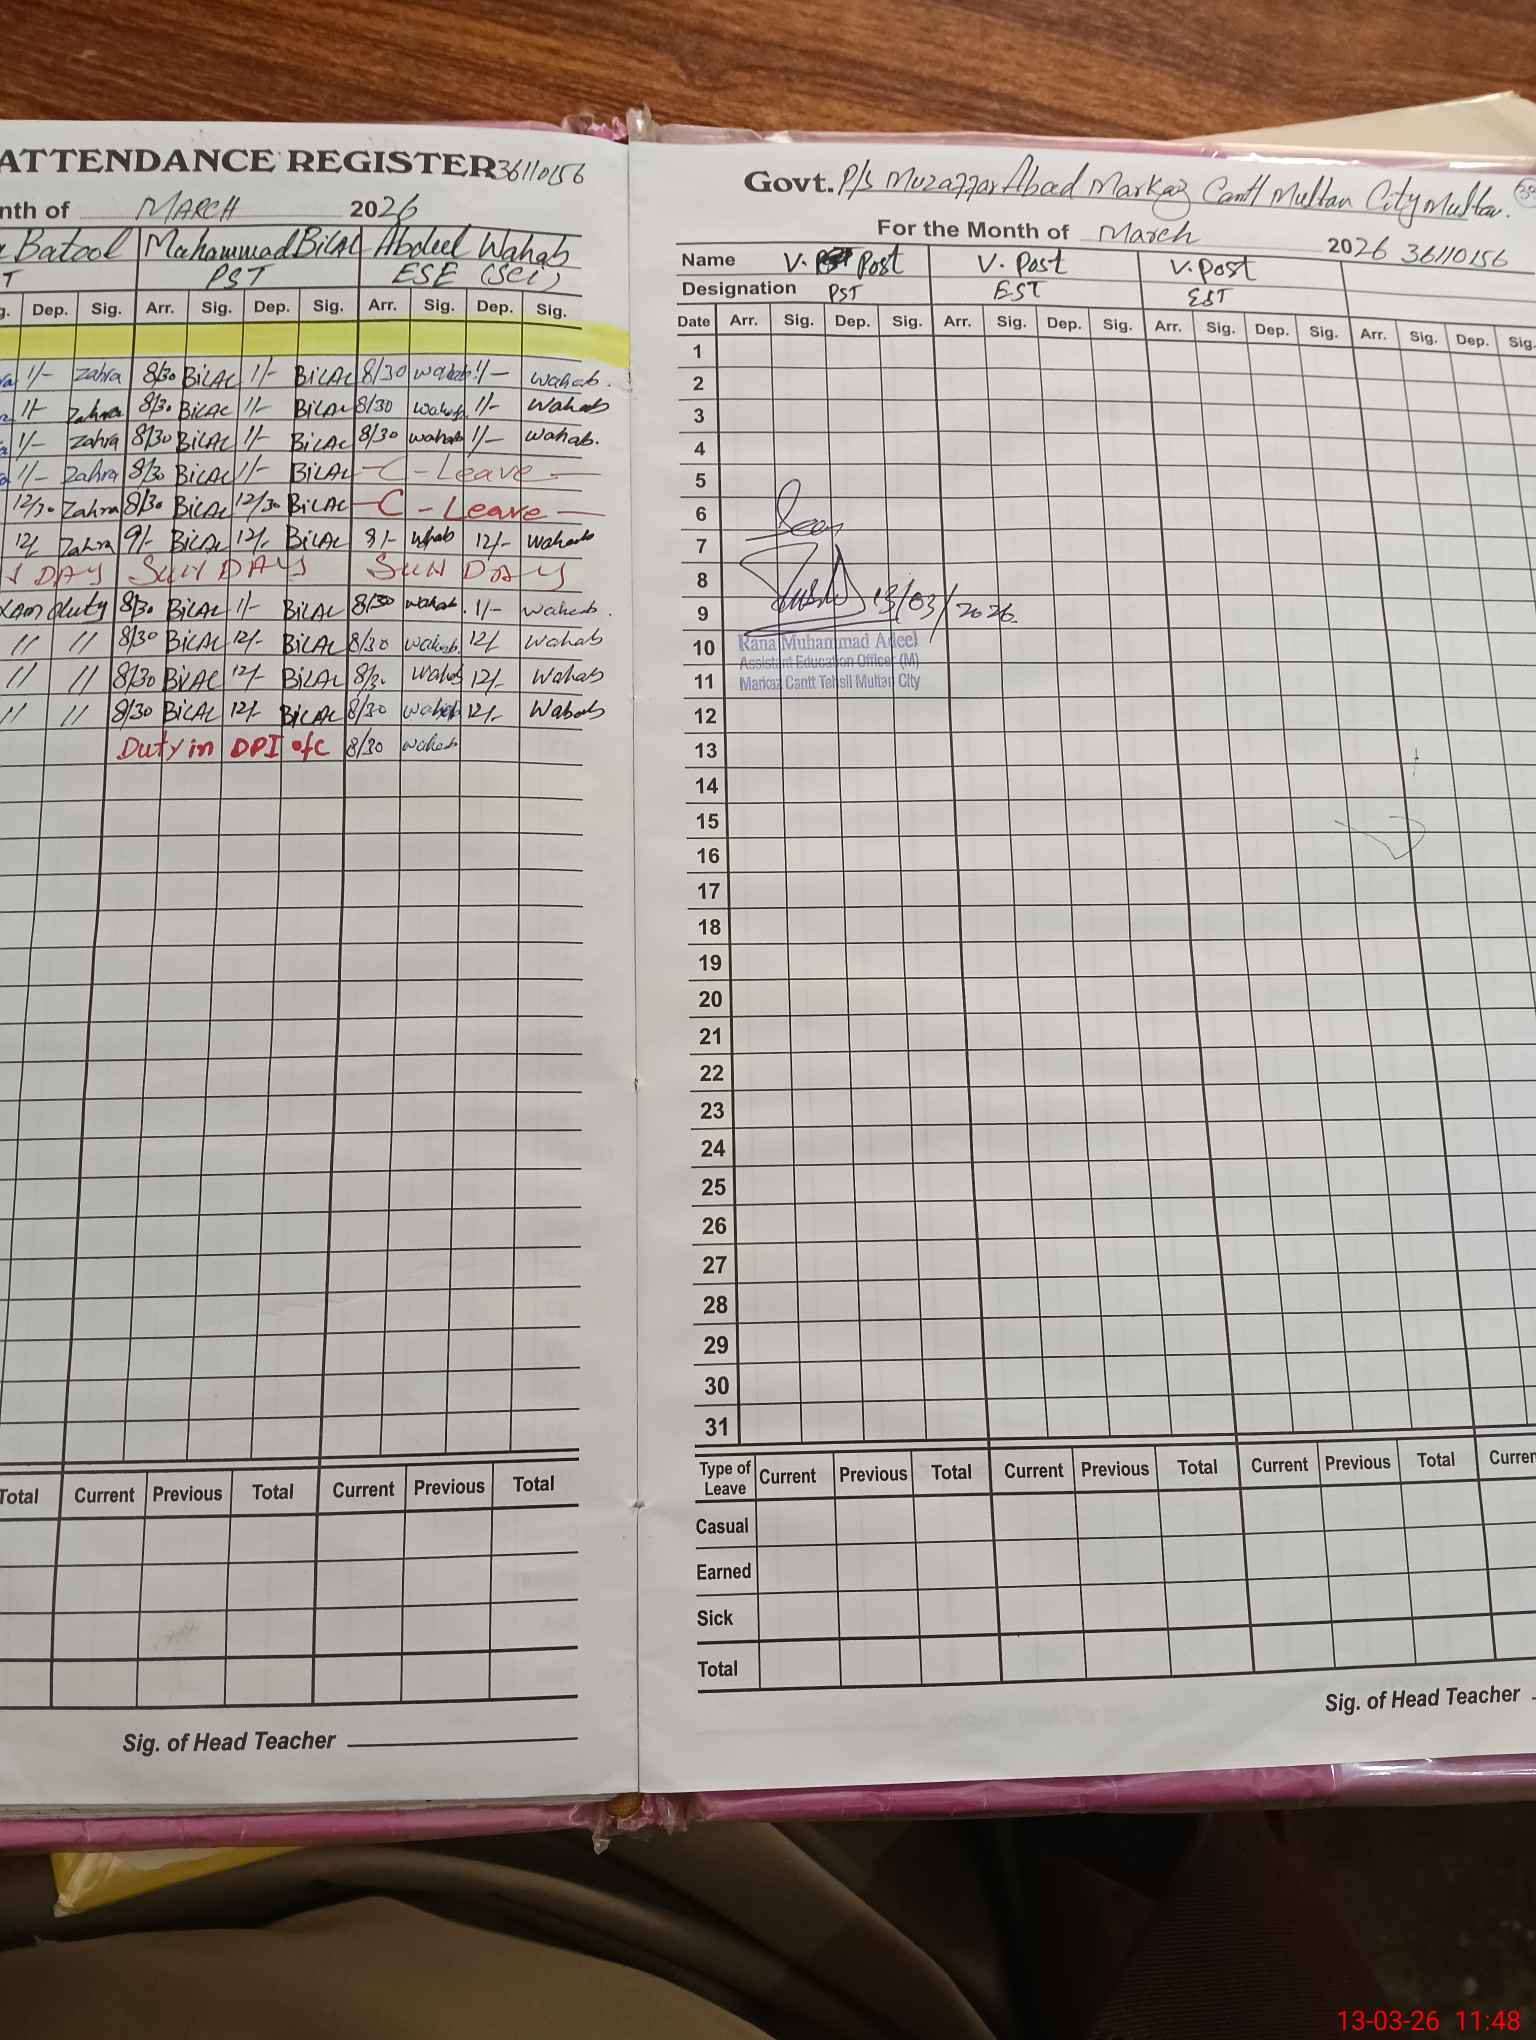 ATTENDANCE REGISTER 36110156
nth of MARCH 2026
Batool Muhammad BiLAL Abdeel Wahab
T PST ESE (SCi)
g. Dep. Sig. Arr. Sig. Dep. Sig. Arr. Sig. Dep. Sig.
1/- Zahra 8/30 BiLAL 1/- BiLAL 8/30 wahab 1/- wahab.
1/- Zahra 8/30 BiLAL 1/- BiLAL 8/30 wahab 1/- Wahab
1/- Zahra 8/30 BiLAL 1/- BiLAL 8/30 wahab 1/- wahab.
1/- Zahra 8/30 BiLAL 1/- BiLAL - C - Leave -
12/30 Zahra 8/30 BiLAL 12/30 BiLAL - C - Leave -
12/ Zahra 9/- BiLAL 12/- BiLAL 9/- whab 12/- wahab
DAY SUNDAY SUNDAY
duty 8/30 BiLAL 1/- BiLAL 8/30 wahab. 1/- wahab.
// // 8/30 BiLAL 12/- BiLAL 8/30 wahab. 12/ wahab
// // 8/30 BiLAL 12/- BiLAL 8/3. wahab 12/- Wahab
// // 8/30 BiLAL 12/- BiLAL 8/30 wahab 12/- Wahab
Duty in DPI ofc 8/30 wahab
Total Current Previous Total Current Previous Total
Sig. of Head Teacher
Govt. P/s Muzaffar Abad Markaz Cantt Multan City Multan.
For the Month of March 2026 36110156
Name V. Post V. Post V. post
Designation PST EST EST
Date Arr. Sig. Dep. Sig. Arr. Sig. Dep. Sig. Arr. Sig. Dep. Sig. Arr. Sig. Dep. Sig.
1
2
3
4
5
6 Seen
7
8
9 13/03/2026.
10 Rana Muhammad Adeel
Assistant Education Officer (M)
11 Markaz Cantt Tehsil Multan City
12
13
14
15
16
17
18
19
20
21
22
23
24
25
26
27
28
29
30
31
Type of Leave Current Previous Total Current Previous Total Current Previous Total Curren
Casual
Earned
Sick
Total
Sig. of Head Teacher
13-03-26 11:48